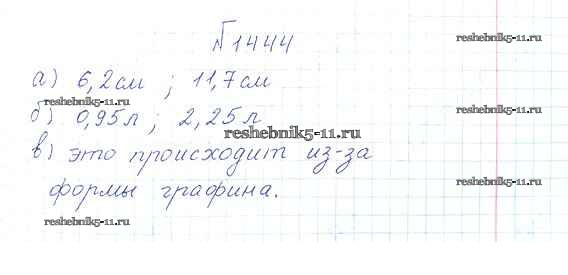 №1444
reshebnik5-11.ru
а) 6,2 см ; 11,7 см
reshebnik5-11.ru
б) 0,95 л ; 2,25 л
reshebnik5-11.ru
reshebnik5-11.ru
в) это происходит из-за
формы графина.
reshebnik5-11.ru
reshebnik5-11.ru